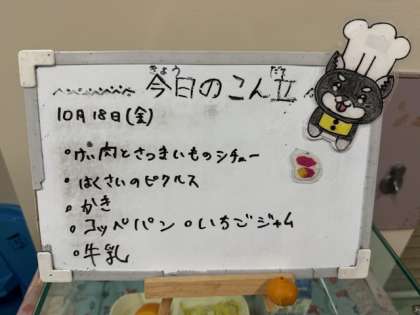 きょう だて
~今日のこん立~
10月18日(金)
・ぶた肉とさつまいものシチュー
・はくさいのピクルス
・かき
・コッペパン ・いちごジャム
・牛乳